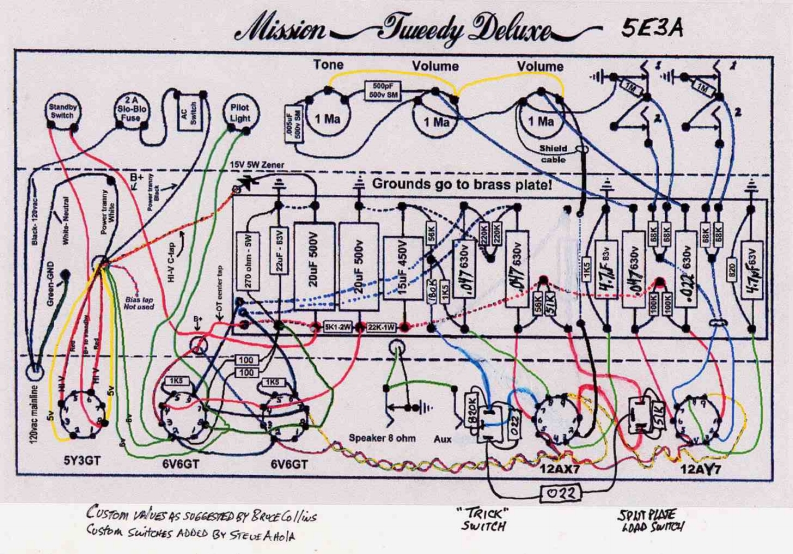 Mission Tweedy Deluxe 5E3A
Tone
Volume
Volume
Standby
Switch
2 A
Slo-Blo
Fuse
AC
Switch
Pilot
Light
.005uF
500v SM
500pF
500v SM
1 Ma
1 Ma
1 Ma
1M
1M
1
1
2
2
Shield
cable
15V 5W Zener
Grounds go to brass plate!
B+
Power tranny
Black
Black- 120vac
White- Neutral
Power tranny
White
Green-GND
HI-V C-tap
OT center tap
Bias tap
Not used
B+
270 ohm - 5W
22uF - 63V
20uF 500V
20uF 500v
15uF 450V
56K
1K5
.047 630v
220K
220K
.047 630v
56K
51K
1K5
4.7uF 63v
.047 630v
68K
68K
100K
100K
.022 630v
68K
68K
820
4.7uF 63V
5K1-2W
22K-1W
100
100
1K5
1K5
120vac mainline
5v
HI V
Red
Red
HI V
5v
6v
6v
5Y3GT
6V6GT
6V6GT
Speaker 8 ohm
Aux
820K
.022
12AX7
51K
12AY7
.022
CUSTOM VALUES AS SUGGESTED BY BRUCE COLLINS
CUSTOM SWITCHES ADDED BY STEVE AHOLA
"TRICK"
SWITCH
SPLIT PLATE
LOAD SWITCH